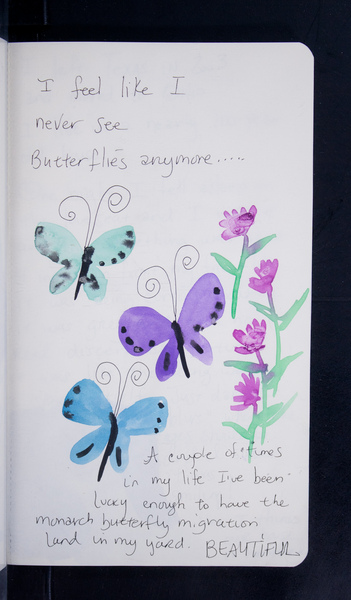 I feel like I
never see
Butterflies anymore.....
A couple of times
in my life I've been
lucky enough to have the
monarch butterfly migration
land in my yard. BEAUTIFUL